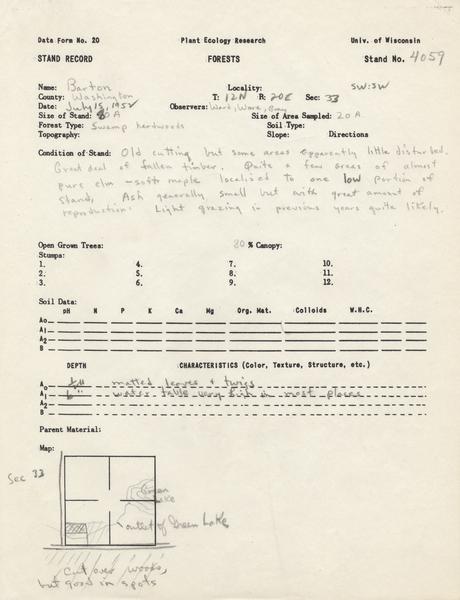 Data Form No. 20 Plant Ecology Research Univ. of Wisconsin
STAND RECORD FORESTS Stand No. 4059
Name: Barton Locality: SW:SW
County: Washington T: 12N R: 20E Sec: 33
Date: July 15, 1952 Observers: Ward, Ware, Gray
Size of Stand: 80 A Size of Area Sampled: 20 A
Forest Type: Swamp hardwoods Soil Type:
Topography: Slope: Directions
Condition of Stand: Old cutting but some areas apparently little disturbed.
Great deal of fallen timber. Quite a few areas of almost
pure elm - soft maple localized to one low portion of
stand, Ash generally small but with great amount of
reproduction. Light grazing in previous years quite likely.
Open Grown Trees: 80 % Canopy:
Stumps:
1. 4. 7. 10.
2. 5. 8. 11.
3. 6. 9. 12.
Soil Data:
pH N P K Ca Mg Org. Mat. Colloids W.H.C.
A₀
A₁
A₂
B
DEPTH CHARACTERISTICS (Color, Texture, Structure, etc.)
A₀ matted leaves + twigs
A₁ 6" water table very high in most places
A₂
B
Parent Material:
Map:
Sec 33
Green
Lake
outlet of Green Lake
cut over woods,
but good in spots